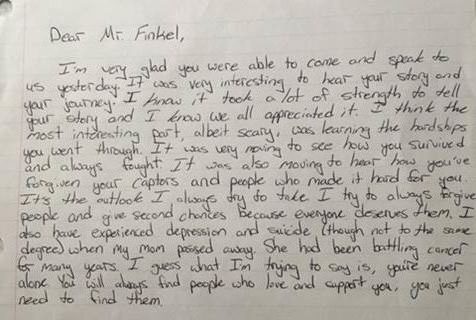 Dear Mr. Finkel,
I'm very glad you were able to come and speak to
us yesterday. It was very interesting to hear your story and
your journey. I know it took a lot of strength to tell
your story and I know we all appreciated it. I think the
most interesting part, albeit scary, was learning the hardships
you went through. It was very moving to see how you survived
and always fought. It was also moving to hear how you've
forgiven your captors and people who made it hard for you.
It's the outlook I always try to take. I try to always forgive
people and give second chances because everyone deserves them. I
also have experienced depression and suicide (though not to the same
degree) when my mom passed away. She had been battling cancer
for many years. I guess what I'm trying to say is, you're never
alone. You will always find people who love and support you, you just
need to find them.